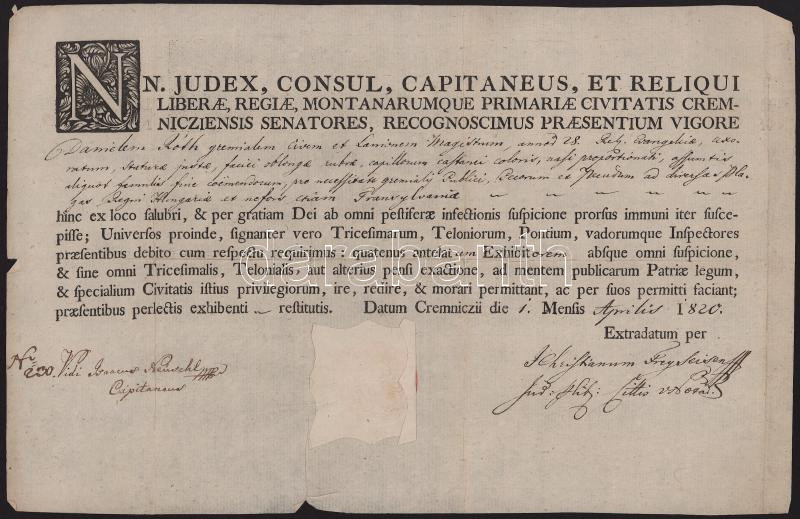 N N. JUDEX, CONSUL, CAPITANEUS, ET RELIQUI
LIBERÆ, REGIÆ, MONTANARUMQUE PRIMARIÆ CIVITATIS CREM-
NICZIENSIS SENATORES, RECOGNOSCIMUS PRÆSENTIUM VIGORE
Danielem Róth gremialem Civem et Lanionem Magistrum, annor 28. Relig. Evangelicæ, uxo-
ratum, staturæ justæ, faciei oblongæ rubræ, capillorum castanei coloris, nasi proportionati, assumtis
aliquot famulis fine coëmendorum, pro necessitate gremialis Publici, Pecorum et Pecudum ad diversas Pla-
gas Regni Hungariæ et nefors etiam Transylvaniæ
hinc ex loco salubri, & per gratiam Dei ab omni pestiferæ infectionis suspicione prorsus immuni iter susce-
pisse; Universos proinde, signanter vero Tricesimarum, Teloniorum, Pontium, vadorumque Inspectores
præsentibus debito cum respectu requirimus: quatenus antelatum Exhibitorem absque omni suspicione,
& sine omni Tricesimalis, Telonialis, aut alterius pens exactione, ad mentem publicarum Patriæ legum,
& specialium Civitatis istius privilegiorum, ire, redire, & morari permittant, ac per suos permitti faciant;
præsentibus perlectis exhibenti restitutis. Datum Cremniczii die 1. Mensis Aprilis 1820.
Extradatum per
Nr. 230. Vidi Capitaneus
Christianum
darabanth